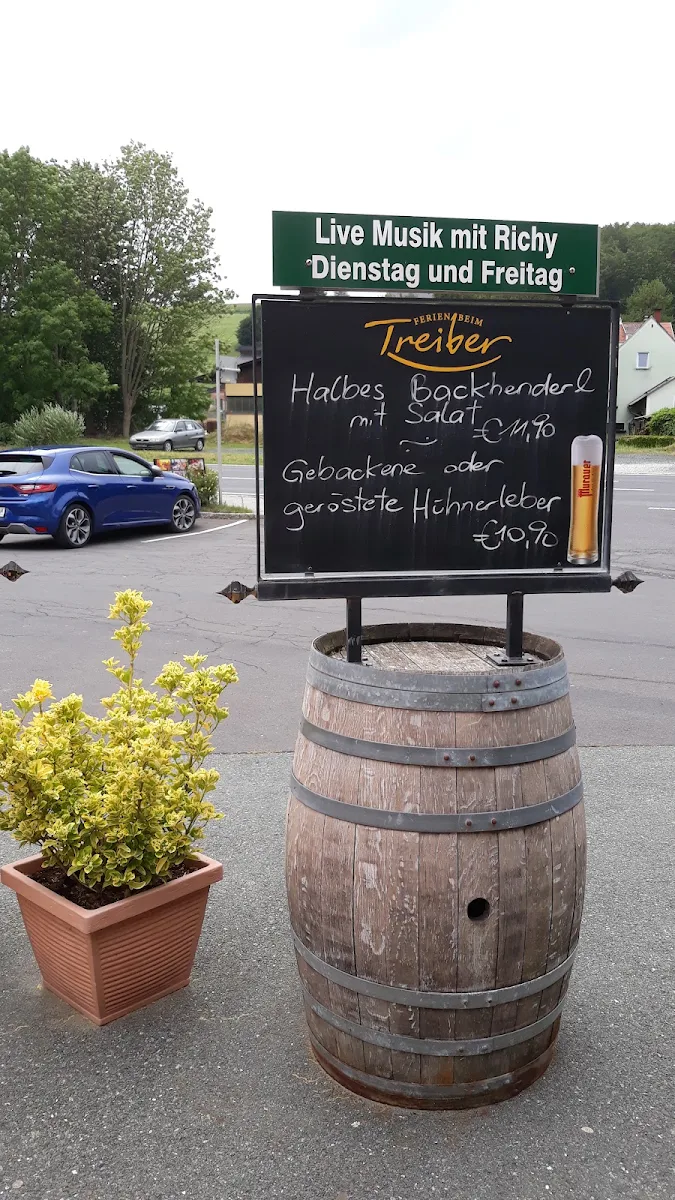 Live Musik mit Richy
Dienstag und Freitag
FERIEN BEIM
Treiber
Halbes Backhenderl
mit Salat
€11,90
Gebackene oder
geröstete Hühnerleber
€10,90
Murauer